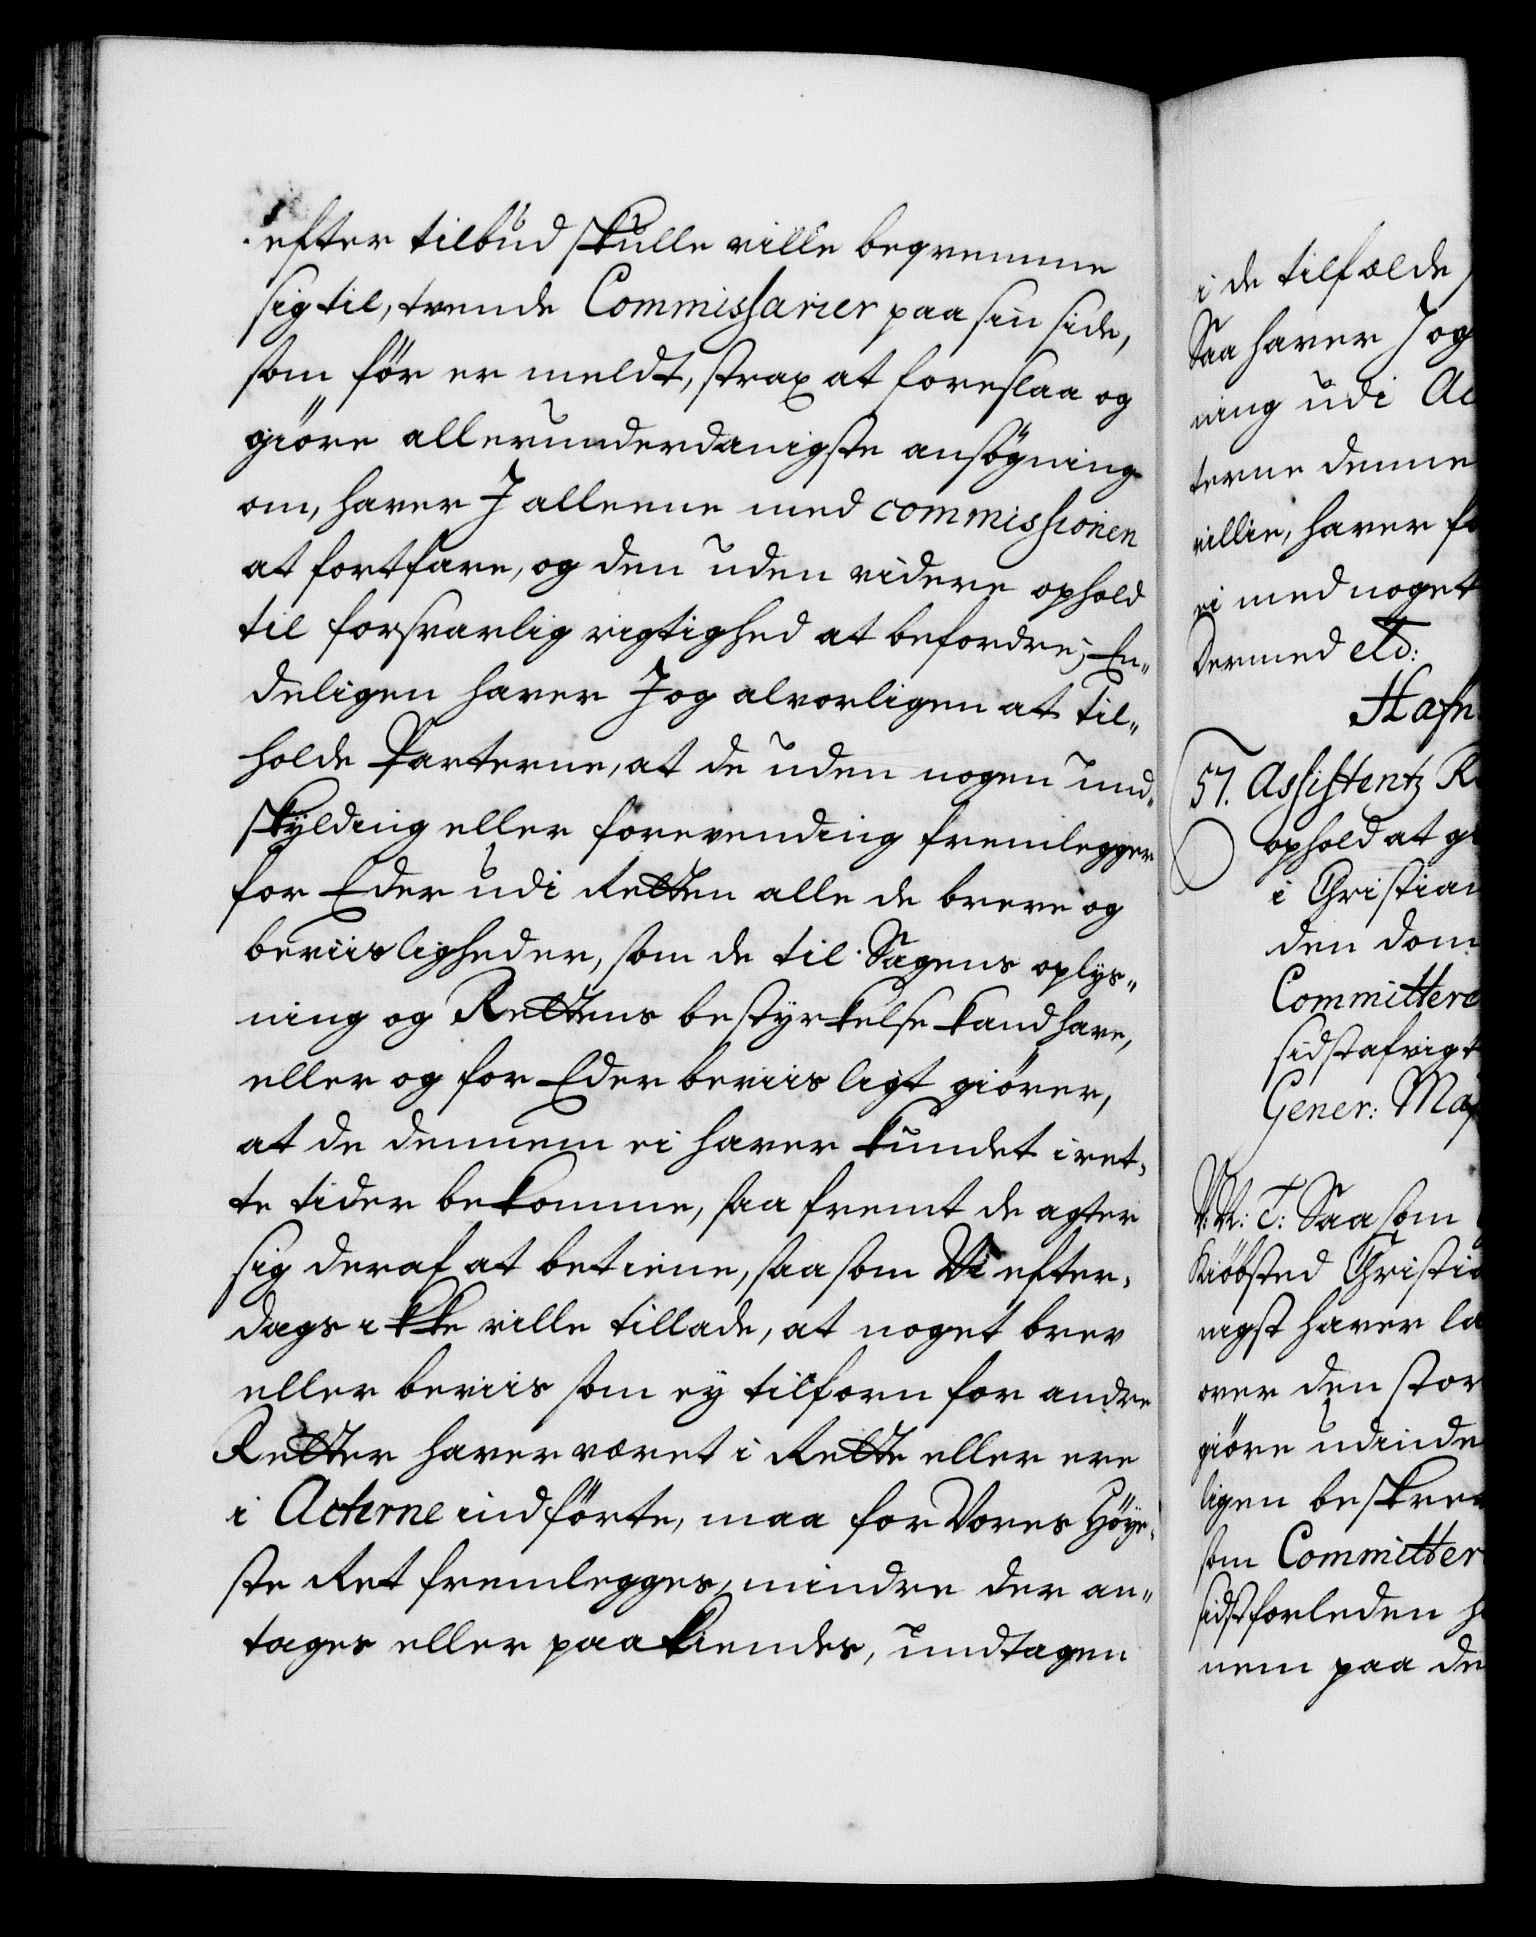 efter tilbud skulle ville beqvemme
sig til, tvende Commissarier paa sin side,
som för er meldt, strax at foreslaa og
giöre allerunderdanigste ansögning
om, haver I alleene med commissionen
at fortfare, og den uden videre ophold
til forsvarlig rigtighed at befordre; En„
deligen haver I og alvorligen at til„
holde Parterne, at de uden nogen und„
skylding eller forevending fremlegger
for Eder udi Retten alle de breve og
beviisligheder, som de til Sagens oplys„
ning og Rettens bestyrkelse kand have,
eller og for Eder beviisligt giörer,
at de dennem ei haver kundet i ret„
te tider bekomme, saa fremt de agter
sig deraf at betiene, saasom Vi efter„
dags ikke ville tillade, at noget brev
eller beviis som ey tilforn for andre
Retter haver været i Rette eller ere
i Acterne indförte, maa for Vores Höye„
ste Ret fremlegges, mindre der an„
tages eller paakiendes, undtagen
i de tilfælde
Saa haver I og
ning udi Ac
terne denne
villie, haver fo
ei med noget
Dermed etc:
Hafn
57. Assistentz R
ophold at gi
i Christian
den dom
Committere
sidst afvigt
Gener: Maj
V: V: T: Saasom
Kiöbsted Christia
nigst haver la
over den stor
giöre udinde
ligen beskrev
som Committer
sidstforleden h
nem paa de